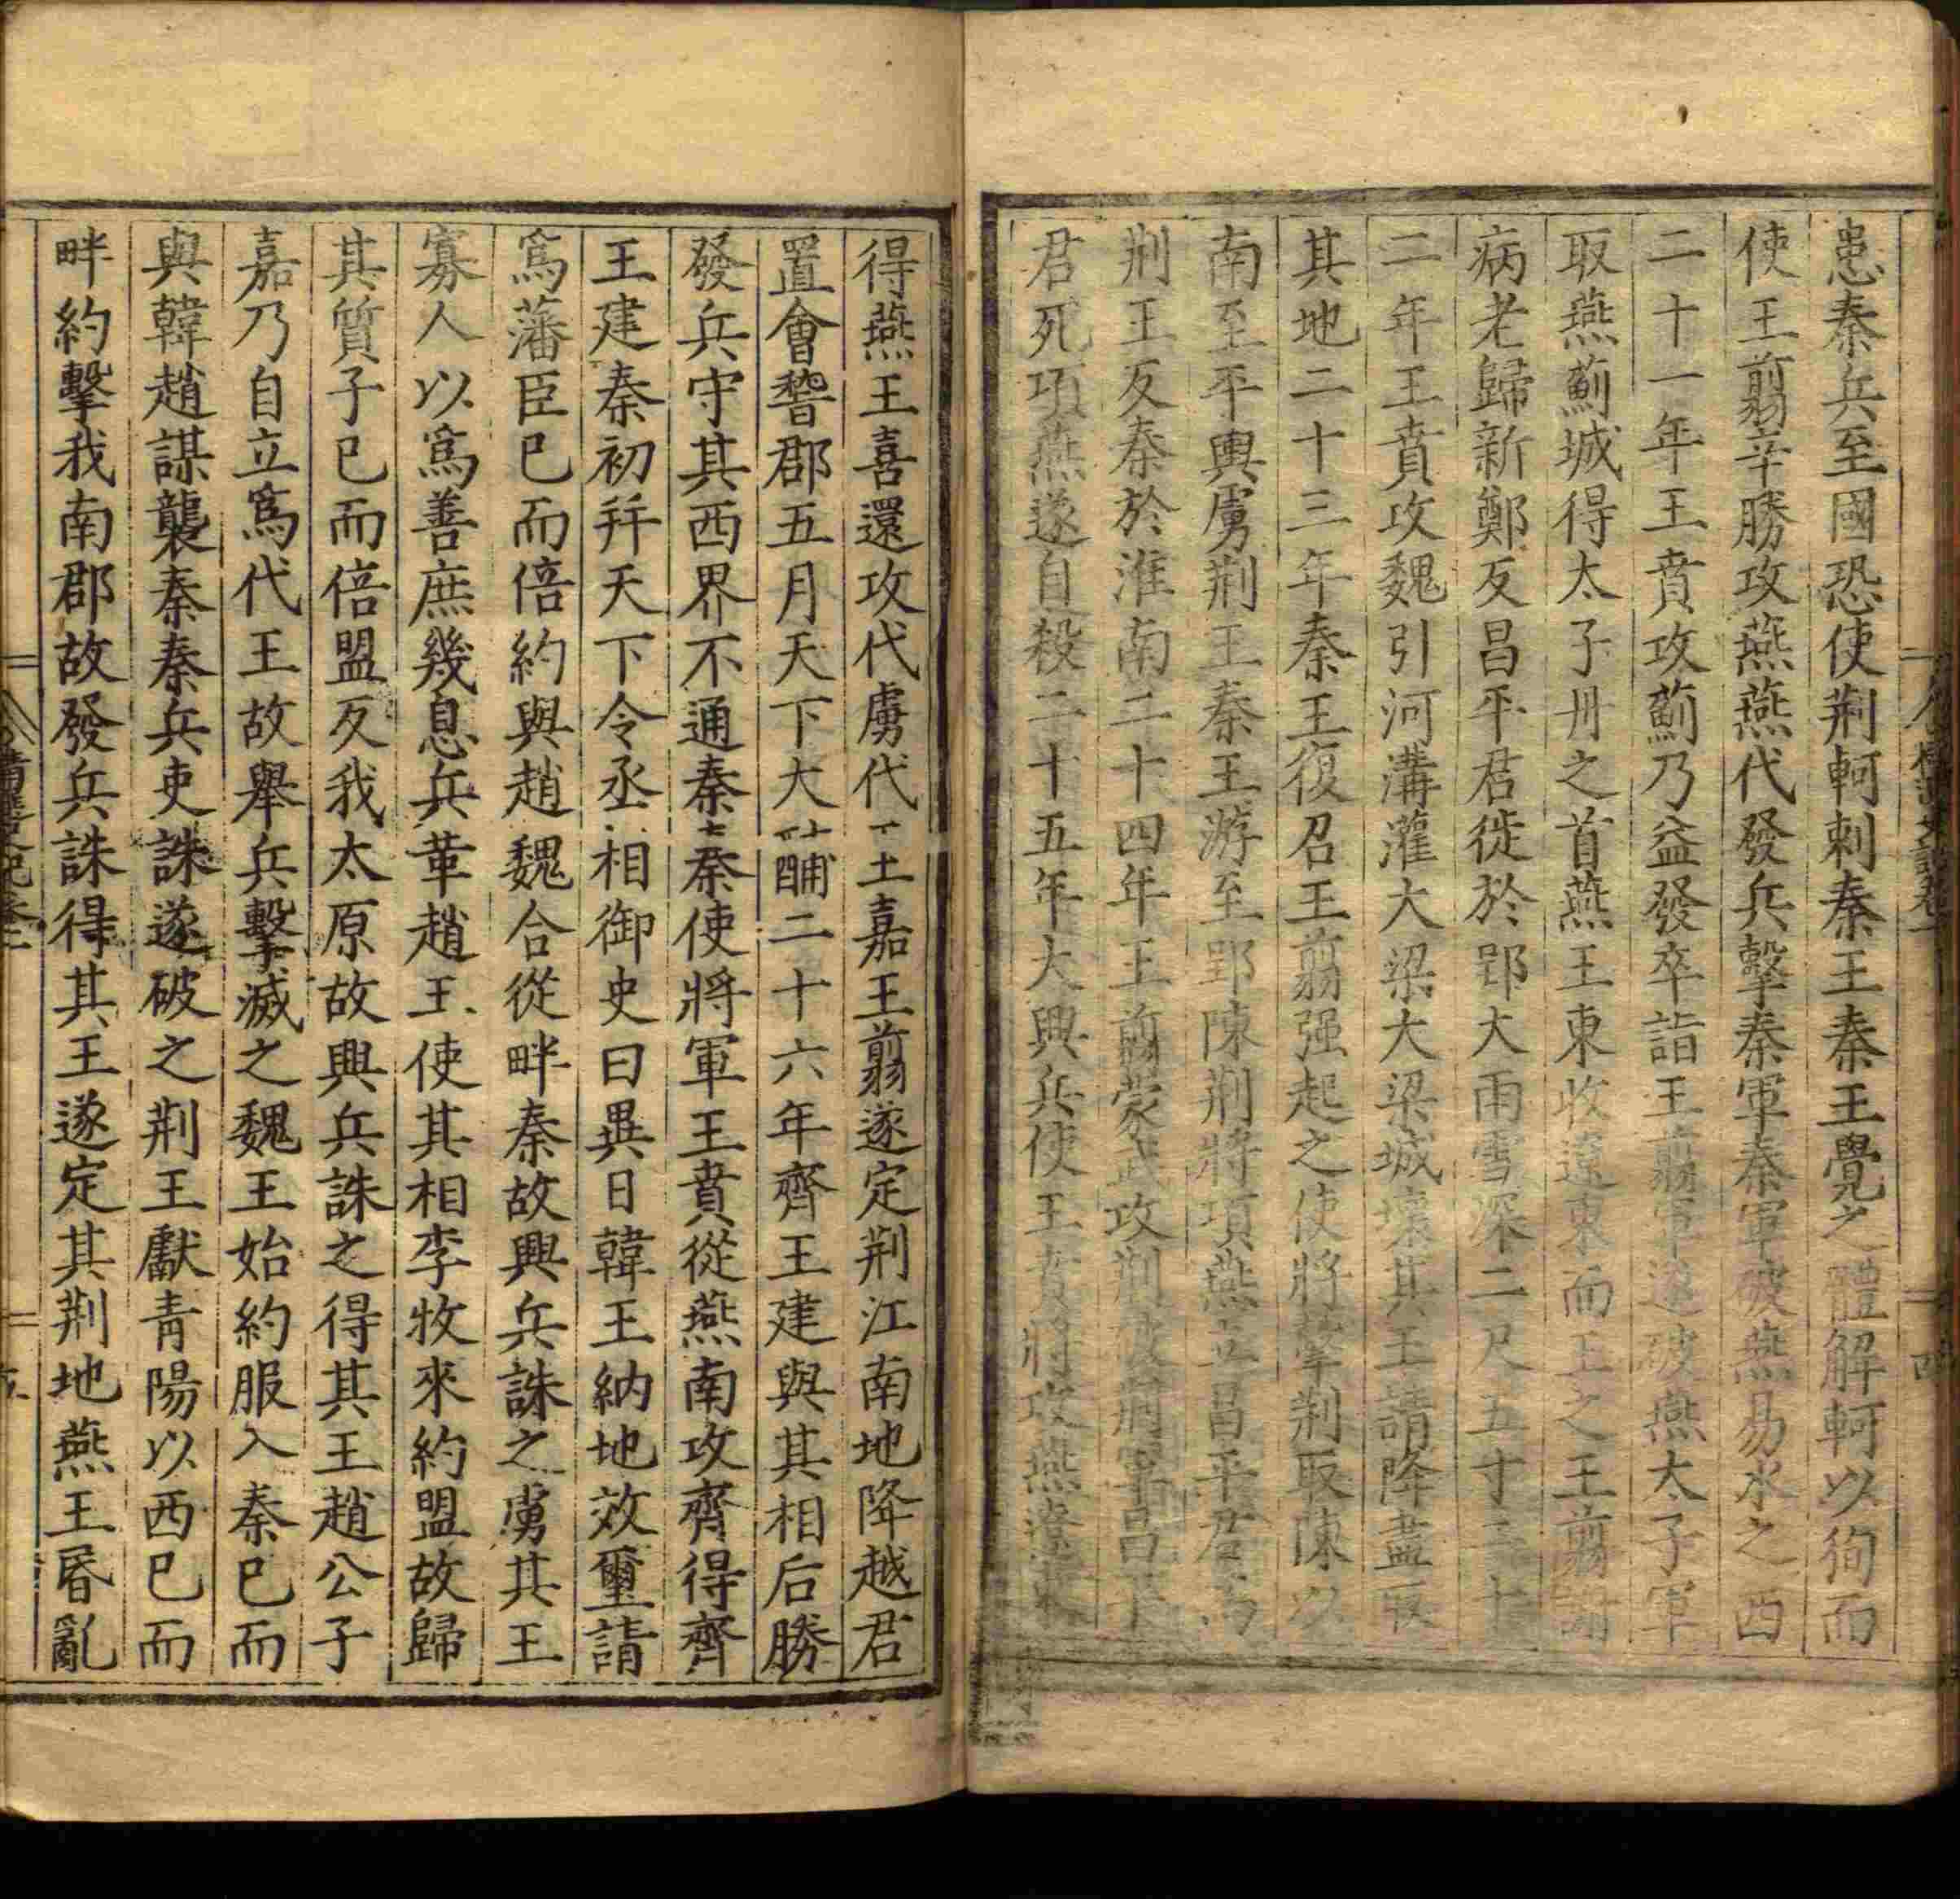 患秦兵至國恐使荆軻刺秦王秦王覺之體解軻以徇而
使王翦辛勝攻燕燕代發兵擊秦軍秦軍破燕易水之西
二十一年王賁攻薊乃益發卒詣王翦軍遂破燕太子軍
取燕薊城得太子丹之首燕王東收遼東而王之王翦謝
病老歸新鄭反昌平君徙於郢大雨雪深二尺五寸二十
二年王賁攻魏引河溝灌大梁大梁城壞其王請降盡取
其地二十三年秦王復召王翦强起之使將擊荆取陳以
南至平輿虜荆王秦王游至郢陳荆將項燕立昌平君爲
荆王反秦於淮南二十四年王翦蒙武攻荆破荆軍昌平
君死項燕遂自殺二十五年大興兵使王賁將攻燕遼東
得燕王喜還攻代虜代王嘉王翦遂定荆江南地降越君
置會稽郡五月天下大酺二十六年齊王建與其相后勝
發兵守其西界不通秦秦使將軍王賁從燕南攻齊得齊
王建秦初幷天下令丞相御史曰異日韓王納地效璽請
爲藩臣已而倍約與趙魏合從畔秦故興兵誅之虜其王
寡人以爲善庶幾息兵革趙王使其相李牧來約盟故歸
其質子已而倍盟反我太原故興兵誅之得其王趙公子
嘉乃自立爲代王故舉兵擊滅之魏王始約服入秦已而
與韓趙謀襲秦秦兵吏誅遂破之荆王獻青陽以西已而
畔約擊我南郡故發兵誅得其王遂定其荆地燕王昬亂